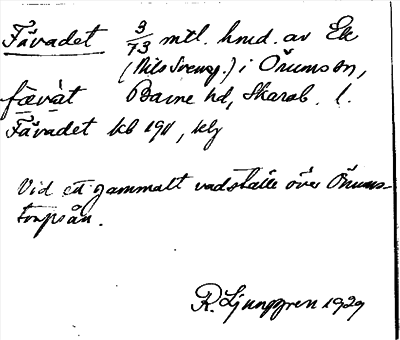 Fävadet 3/73 mtl. hmd. av Ek
(Nils Svensg.) i Önum sn,
fævàt Barne hd, Skarab. l.
Fävadet kb 1911, klj
Vid ett gammalt vadställe över Önums-
torpsån.
R. Ljunggren 1929